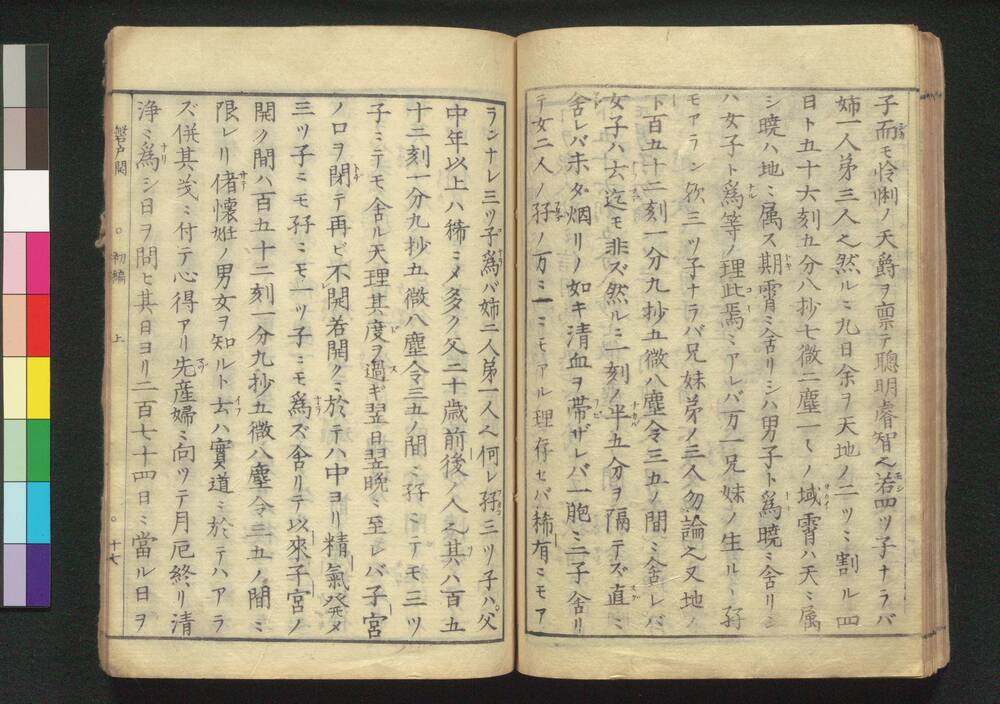 子而モ怜悧ノ天爵ヲ禀テ聰明睿智之若四ツ子ナラバ
姉一人弟三人之然ルニ九日余ヲ天地ノ二ツニ割ル四
日ト五十六刻五分八抄七微二塵一〱ノ域霄ハ天ニ属
シ曉ハ地ニ属ス期霄ニ舎リシハ男子ト爲曉ニ舎リシ
ハ女子ト爲等ノ理此焉ニアレバ万一兄妹ノ生ルヽ孖
モアラン欤三ツ子ナラバ兄妹弟ノ三人勿論之又地ノ
卜百五十二刻一分九抄五微八塵令三五ノ間ニ舎レバ
女子ハ云迄モ非ズ然ルニ一刻ノ平五分ヲ隔テズ直ニ
舎レバ未タ烟リノ如キ清血ヲ帯ザレバ一胞ニ二子舎リ
テ女二人ノ孖ノ万ニ一ニモアル理存セバ稀有ニモア
ランナレ三ツ子爲バ姉二人弟一人へ何レ孖三ツ子ハ父
中年以上ハ稀ニメ多ク父二十歳前後ノ人之其ハ百五
十二刻一分九抄五微八塵令三五ノ間ニ孖ニテモ三ツ
子ニテモ舎ル天理其度ヲ過ギ翌日翌晩ニ至レバ子宮
ノ口ヲ閉テ再ビ不開若開クニ於テハ中ヨリ精氣発メ
三ツ子ニモ孖ニモ一ツ子ニモ爲ズ舎リテ以來子宮ノ
開ク間ハ百五十二刻一分九抄五微八塵令三五ノ間ニ
限レリ偖懐妊ノ男女ヲ知ルト云ハ實道ニ於テハアラ
ズ併其 ニ付テ心得アリ先産婦ニ向ツテ月厄終リ清
浄ニ爲シ日ヲ問ヒ其日ヨリ二百七十四日ニ當ル日ヲ
磐戸開 ○初編 上 ○十七